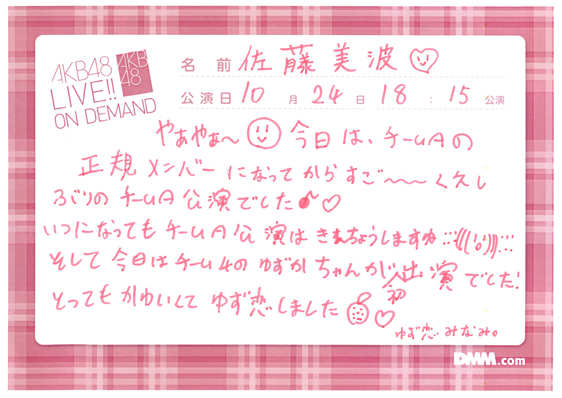 AKB48
LIVE!!
ON DEMAND
AKB
48
名前 佐藤美波♡
公演日 10月24日 18:15公演
やぁやぁ〜 今日は、チームAの
正規メンバーになってからすご〜〜〜く久し
ぶりのチームA公演でした♪♡
いつになってもチームA公演はきんちょうしますね:::(((;'o'))):::
そして今日はチーム4のゆずかちゃんが初出演でした!
とってもかわいくてゆず恋しました♡
ゆず恋みなみ。
DMM.com